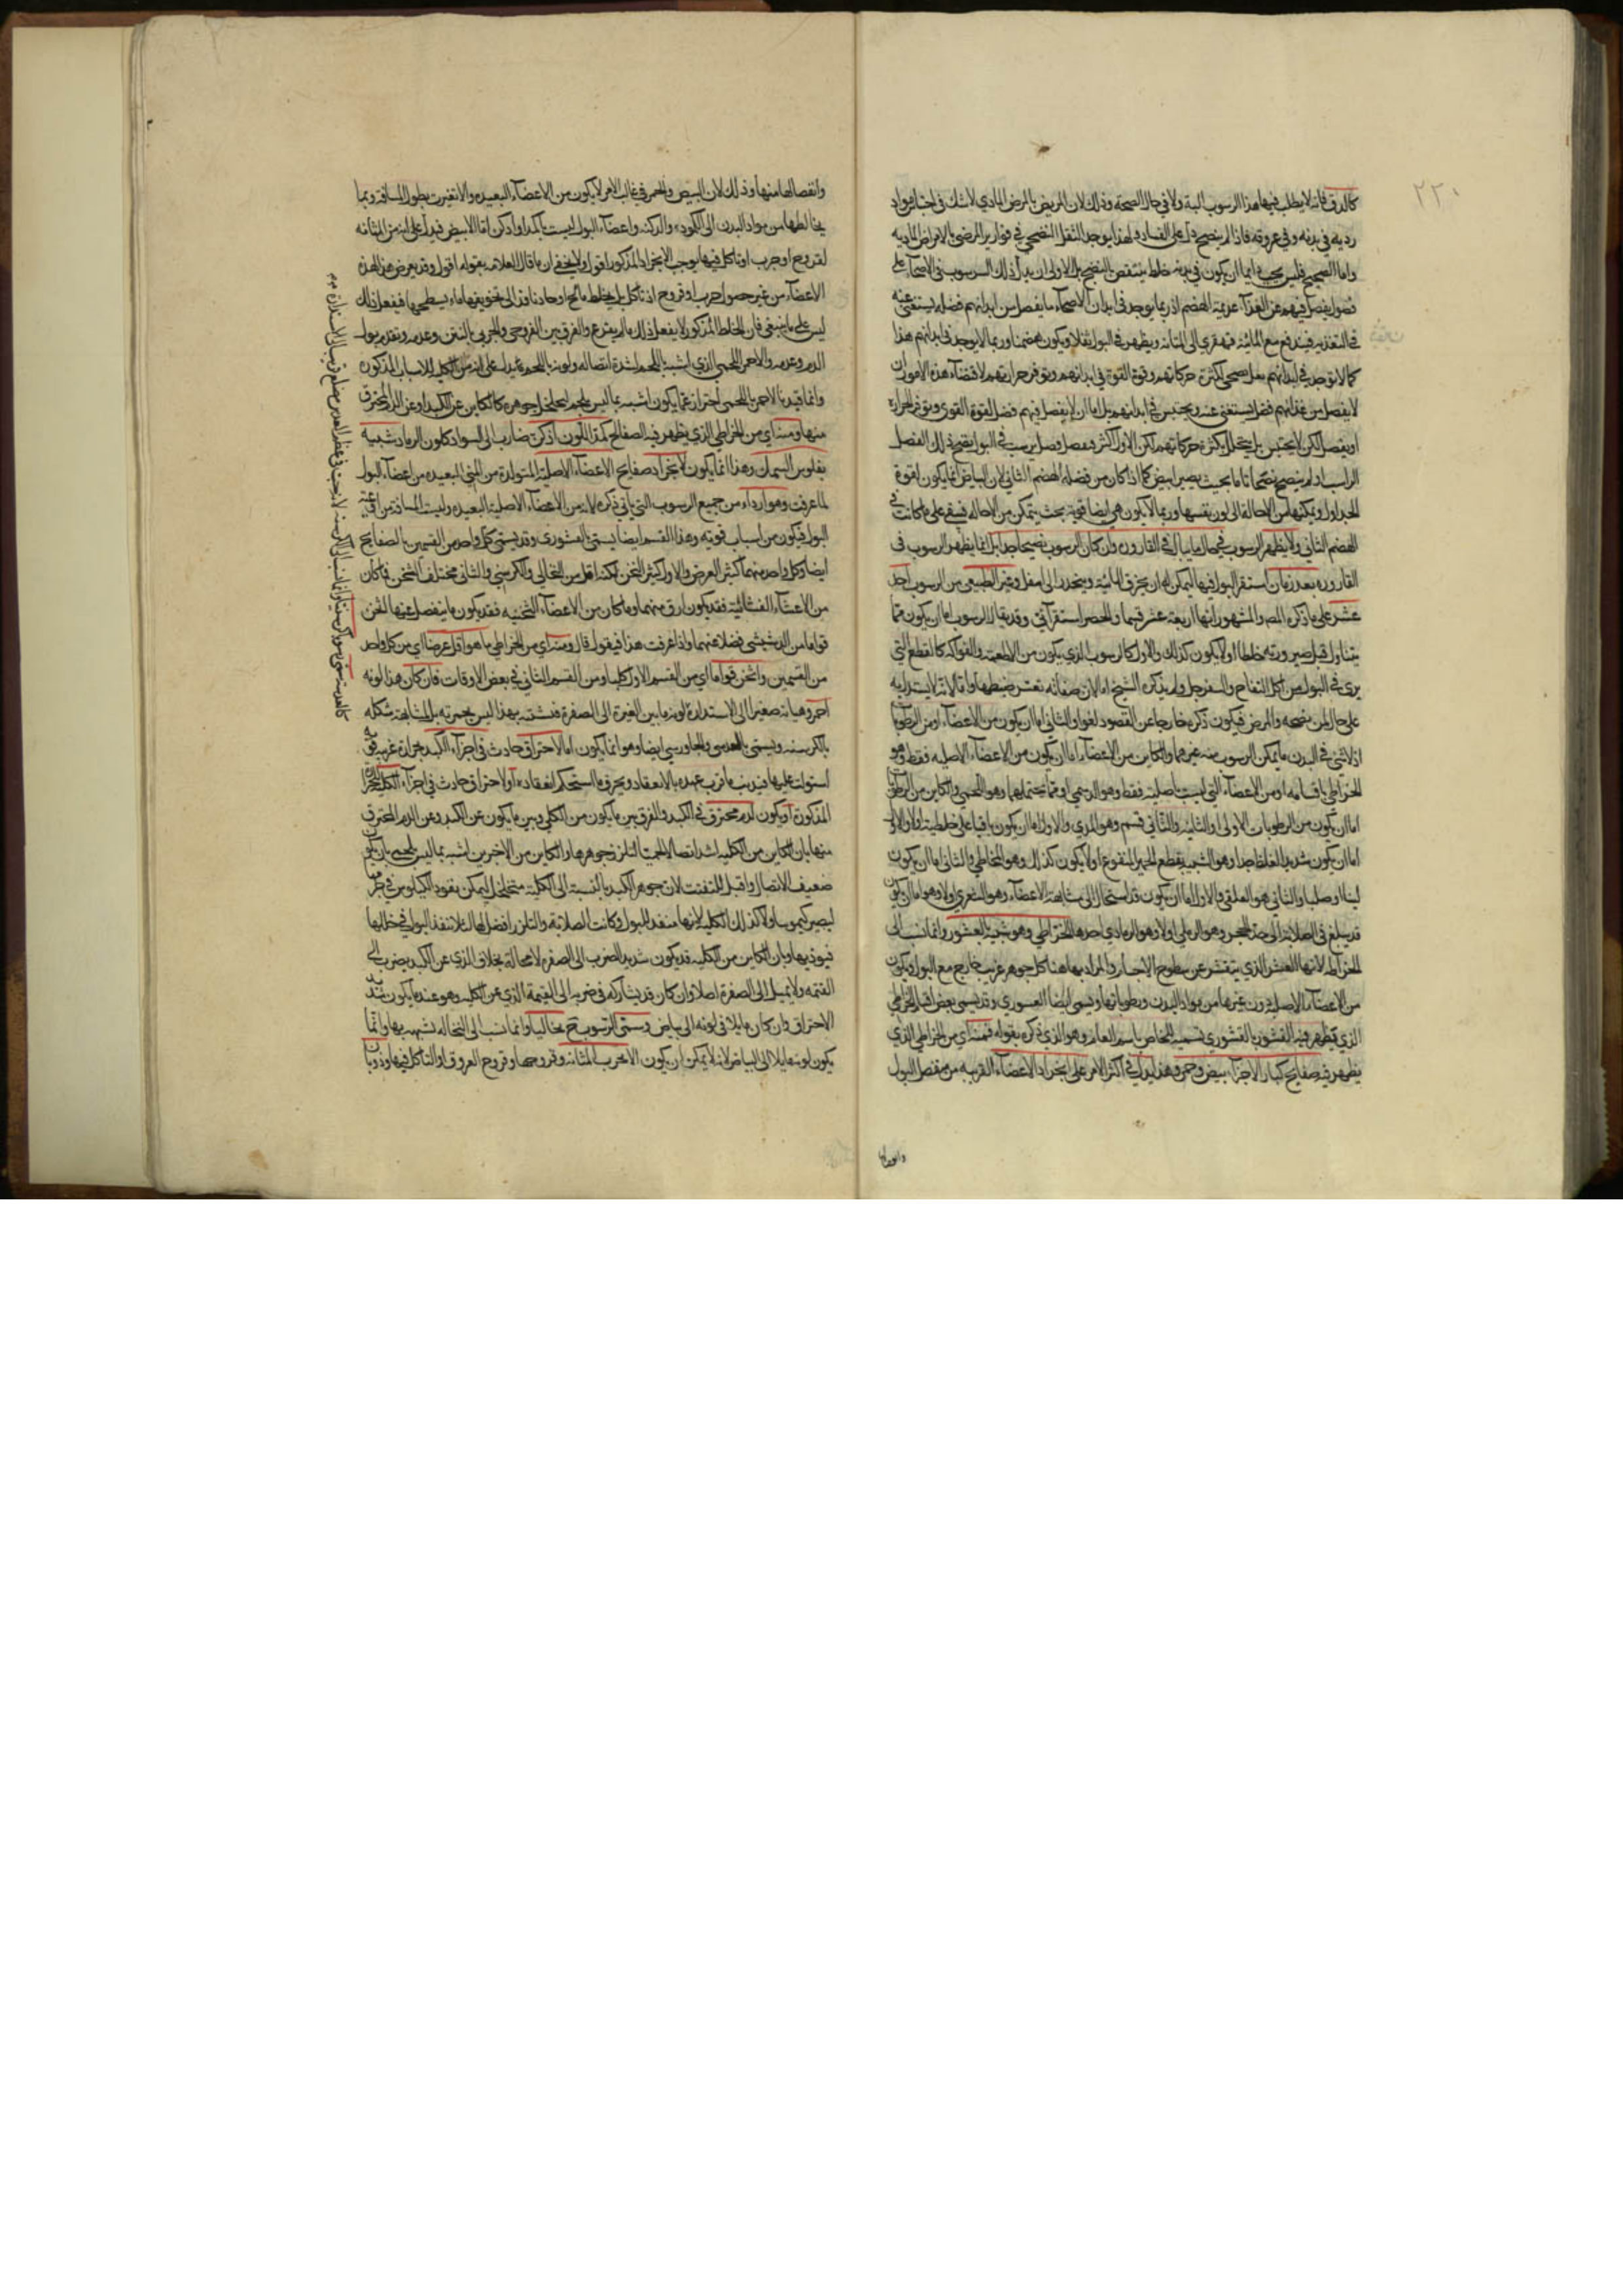 ٢٢٠
كالدق فانه لا يطلب فيها هذا الرسوب البتة ولا في حال الصحة وذلك لان المريض بالمرض المادي لا شك في احتباس مواد
ردية في بدنه وفي عروقه فاذا لم ينضج دل على الفساد ولهذا يوجد الثفل النضجي في قوارير المرضى بالامراض المادية
واما الصحيح فليس يجب دايما ان يكون في بدنه خلط ينتفض النضج بل الاولى ان يدل ذلك الرسوب في الاصحاء على
فضول يفصل فيهم عن الغذاء عديمة الهضم اذ ربما يوجد في ابدان الاصحاء ما يفصل من ابدانهم فضلة يستغنى عنه
في التغذية فيندفع مع المائية فتهرى الى المثانة ويظهر في البول ثفلا ويكون هضمها وربما لا يوجد في ابدانهم هذا
كما لا توجد في ابدانهم بعل صحي لكثرة حركاتهم وقوة القوة في ابدانهم وتوفر حرارتهم لاقتضاء هذه الامور ان
لا يفصل من غذائهم فضل يستغنى عنه ويحتبس في ابدانهم بل اما ان لا يفصل فيهم فضل لقوة القوى وتوفر الحرارة
او يفصل لكن لا يحتبس بل يتحلل لكثرة حركاتهم لكن الاول اكثر وفصل يرسب في البول ينضج ذلك الفضل
الراسب اذ لم ينضج نضجا تاما بحيث يصير ابيض كما اذا كان من فضلة الهضم الثاني لان البياض انما يكون لقوة
الجداول وتمكنها من الاحالة الى لون نفسها وربما لا يكون هي ايضا قوية بحيث يتمكن من الاحالة فيبقى على ما كانت في
الهضم الثاني ولا يظهر الرسوب في حال ما يبال في القارورة وان كان الرسوب نضيجا جدا بل انما يظهر الرسوب في
القارورة بعد زمان استقر البول فيها ليمكن له ان يخرق المائية وينحدر الى اسفل وغير الطبيعي من الرسوب احد
عشر على ما ذكره المص والمشهور انها اربعة عشر قسما والحصر استقرائي وقد يقال الرسوب اما ان يكون مما
يتناول قبل صيرورته خلطا اولا يكون كذلك والاول كالرسوب الذي يكون من الاطعمة والفواكه كالقطع التي
يرى في البول من اكل التفاح والسفرجل ولم يذكره الشيخ اما لان صفاته تعسر ضبطها واما لانه لا يستدل به
على حال من صحة والمرض فيكون ذكره خارجا عن المقصود لغوا والثاني اما ان يكون من الاعضاء او من الرطوبا
اذ لا شئ في البدن ما يمكن الرسوب منه غيرهما والكاين من الاعضاء اما ان يكون من الاعضاء الاصلية فقط وهو
الخراطي باقسامه او من الاعضاء التي ليست باصلية فقط وهو الدسمي او مما يحتملهما وهو اللحمي والكاين من الرطوبا
اما ان يكون من الرطوبات الاولى او الثانية والثاني قسم وهو المدي والاول اما ان يكون باقيا على خلطيته او لا والاول
اما ان يكون شديد الغلظ جدا وهو الشبيه بقطع الخمير المنقوع او لا يكون كذلك وهو المخاطي والثاني اما ان يكون
لينا او صلبا والثاني هو العلقي والاول اما ان يكون قد استحال الى مشابهة الاعضاء وهو الشعري او لا وهو اما ان يكون
قد بلغ في الصلابة الى حد الحجر وهو الرملي او لا وهو الرمادي احدها الخراطي وهو شبيه القشور وانما نسب الى
الخراطة لانها القشر الذي يتقشر عن سطوح الاجساد والمراد بها هنا كل جوهر غريب خارج مع البول ويكون
من الاعضاء الاصلية دون غيرها من مواد البدن ورطوباتها ويسمى ايضا القشوري وقد يسمى بعض اقسام الخراطي
الذي يظهر فيه القشور بالقشوري تسمية للخاص باسم العام وهو الذي ذكره بقوله فمنه اي من الخراطي الذي
يظهر فيه صفايح كبار الاجزاء بيض وحمر وهذا يدل في اكثر الامر على انجراد الاعضاء القريبة من مفصل البول
وانفصالها
وانفصالها منها وذلك لان البيض والحمر في غالب الامر لا يكون من الاعضاء البعيدة والا تغيرت بطول المسافة وبما
يخالطها من مواد البدن الى الكمودة والدكنة واعضاء البول ليست باكمد او ادكن اما الابيض فيدل على انه من المثانة
لقروح او جرب او تاكل فيها يوجب الانجراد المذكور اقول ولا يخفى ان ما قال العلامة بقوله اقول وقد يعرض هذا لهذه
الاعضاء من غير حصول جرب او قروح اذ تاكل بل لخلط مالح او حاد نافذ الى تجويفها ماء بسطحها فيفعل ذلك
ليس على ما ينبغي فان الخلط المذكور لا يفعل ذلك ما لم يقرح والفرق بين القروحي والجربي بالنتن وعدمه وتقدم بول
الدم وعدمه والاحمر اللحمي الذي اشبه باللحم لشدة اتصاله ولونه باللحم يدل على انه من الكلية للاسباب المذكورة
وانما قيد بالاحمر باللحمي احتراز عما يكون اشبه بما ليس بلحم لتخلخل جوهره كالكاين عن الكبد او عن الدم المحترق
منها ومنه اي من الخراطي الذي يظهر فيه الصفايح كمد اللون ادكن ضارب الى السواد كلون الرماد شبيه
بفلوس السمك وهذا انما يكون لانجراد صفايح الاعضاء الاصلية المتولدة من المني البعيدة من اعضاء البول
لما عرفت وهو ارداء من جميع الرسوب التي ياتي ذكره لانه من الاعضاء الاصلية البعيدة وليست المسافة من اعضاء
البول فيكون من اسباب قوية وهذا القسم ايضا يسمى القشوري وقد يسمى كل واحد من القسمين بالصفايح
ايضا وكل واحد منهما كثير العرض والاول كثير الثخن لكنه اقل من النخالي والكرسني والثاني مختلف الثخن فما كان
من الاعضاء الغشائية فقد يكون ارق منهما وما كان من الاعضاء الثخينة فقد يكون ما ينفصل عنها اثخن
قواما من الدشيشي فضلا عنهما واذا عرفت هذا فيقول قال ومنه اي من الخراطي ما هو اقل عرضا اي من كل واحد
من القسمين واثخن قواما اي من القسم الاول كليا ومن القسم الثاني في بعض الاوقات فان كان هذا لونه
احمر وهيأته صغيرا الى الاستدارة لونه ما بين الغبرة الى الصفرة فنسبته بهذا ليس بحمرته بل لمشابهته شكله
بالكرسنة ويسمى بالعدسي والجاورسي ايضا وهو انما يكون اما لاحتراق حادث في اجزاء الكبد بحرارة غريبة قوية
استولت عليها فيذيب ما قرب عهده بالانعقاد ويحرق ما استحكم انعقاده او لاحتراق حادث في اجزاء الكلية للحرارة
المذكورة او يكون لدم محترق في الكبد والفرق بين ما يكون من الكلى وبين ما يكون عن الكبد وعن الدم المحترق
منها بان الكاين من الكلية اشد اتصالا لحميتها لتلزز جوهرها والكاين من الاخرين اشبه بما ليس بلحم بان يكون
ضعيف الاتصال واقبل للتفتت لان جوهر الكبد بالنسبة الى الكلية متخلخل ليمكن نفوذ الكيلوس في جرمها
ليصير كيموسا ولا كذلك الكلية لانها منفذ البول وكانت الصلابة والتلزز افضل لها لئلا تنفذ البول في خللها
فيوذيها وبان الكاين من الكلية قد يكون شديد الضرب الى الصفرة لا محالة بخلاف الذي عن الكبد يضرب الى
القتمة ولا يميل الى الصفرة اصلا وان كان قد يشاركه في ضربه الى القتمة الذي عن الكلية وهو عند ما يكون شديد
الاحتراق وان كان مايلا في لونه الى بياض وسمى الرسوب ح نخاليا وانما نسب الى النخالة تشبيه بها وانما
يكون لونه مايلا الى البياض لانه لا يمكن ان يكون الا عن جرب المثانة وقروحها وقروح العروق او التاكل فيها وذوبان